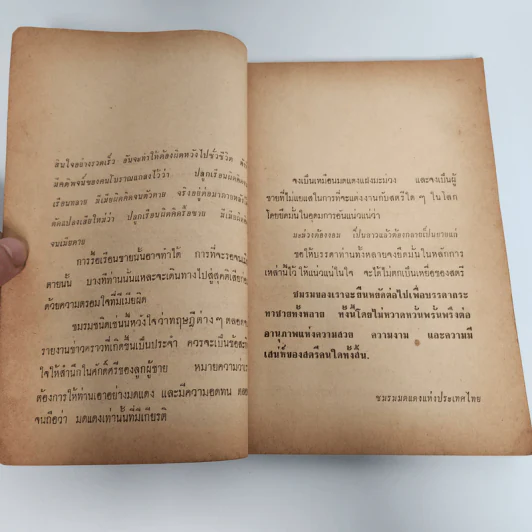 สินใจอย่างรวดเร็ว อันจะทำให้ต้องผิดหวังไปชั่วชีวิต
ผิดคิดจนขื่นขมโบราณแถลงไว้ว่า ปลูกเรือนผิดคิด
เรือนทลาย มีเมียผิดคิดจนตัวตาย จริงอยู่
ดัดแปลงเสียใหม่ว่า ปลูกเรือนผิดคิดรื้อขาย มีเมียผิดคิด
จนเมียตาย
การรื้อเรือนขายนั้นอาจทำได้ การที่จะรอจนเมีย
ตายนั้น บางทีท่านนั่นแหละจะเดินทางไปสู่สุคติเสียก่อน
ด้วยความตรอมใจที่มีเมียผิด
ชมรมชนิดเช่นนี้หวังใจว่าทฤษฎีต่างๆ ตลอด
รายงานข่าวคราวที่เกิดขึ้นเป็นประจำ ควรจะเป็นข้อ
ใจให้สำนึกในศักดิ์ศรีของลูกผู้ชาย หมายความว่า
ต้องการให้ท่านเอาอย่างมดแดง และมีความอดทน
จนถือว่า มดแดงเท่านั้นที่มีเกียรติ
จงเป็นเหมือนมดแดงแฝงมะม่วง และจงเป็นผู้
ชายที่ไม่แยแสในการที่จะแต่งงานกับสตรีใด ๆ ในโลก
โดยยึดมั่นในอุดมการอันแน่วแน่ว่า
มะม่วงต้องงอม กี่บ่าวแล้วต้องกลายเป็นชายแก่
ขอให้บรรดาท่านทั้งหลายจงยึดมั่นในหลักการ
เหล่านี้ไว้ ให้แน่วแน่ในใจ จะได้ไม่ตกเป็นเหยื่อของสตรี
ชมรมของเราจะยืนหยัดต่อไปเพื่อบรรดากระ
ทาชายทั้งหลาย ทั้งนี้โดยไม่หวาดหวั่นพรั่นพรึงต่อ
อานุภาพแห่งความสวย ความงาม และความมี
เสน่ห์ของสตรีคนใดทั้งสิ้น.
ชมรมมดแดงแห่งประเทศไทย